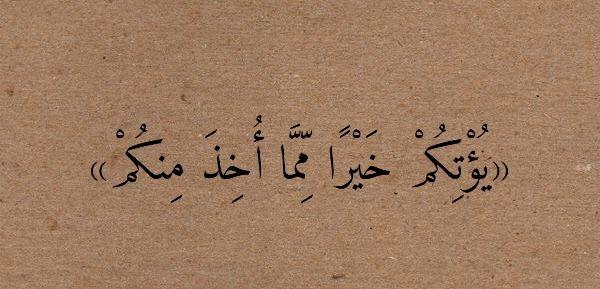 ((يُؤْتِكُمْ خَيْرًا مِّمَّا أُخِذَ مِنكُمْ))